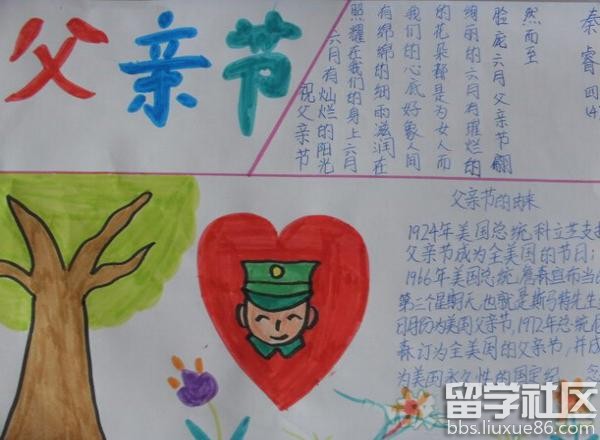 父亲节
祝父亲节
六月有灿烂的阳光
照耀在我们的身上六月
有绵绵的细雨滋润在
我们的心底好象人间
的花朵都是为女人而
绚丽的六月有璀烂的
脸庞六月父亲节翩
然而至
秦睿四(4)
父亲节的由来
1924年美国总统科立芝支
父亲节成为全美国的节日;
1966年美国总统詹森宣布当
第三个星期天,也就是斯马特先生
日月份为美国父亲节,1972年总统尼
森订为全美国的父亲节,并成
为美国永久性的国定纪
留学社区
bbs.liuxue86.com